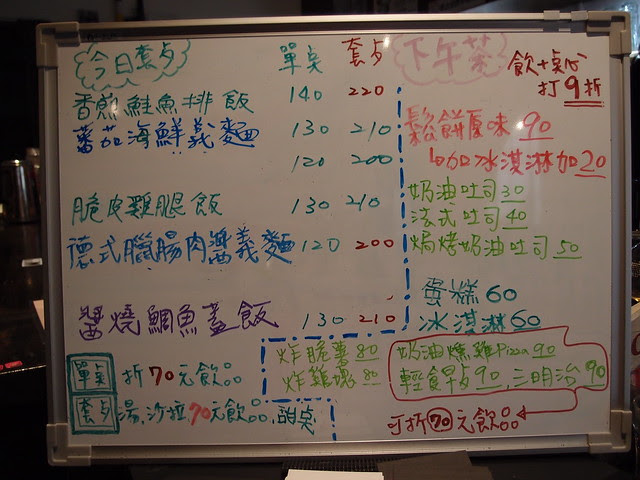 今日套点
單点 套点
香煎鮭魚排飯 140 220
蕃茄海鮮義麵 130 210
120 200
脆皮雞腿飯 130 210
德式臘腸肉醬義麵 120 200
醬燒鯛魚蓋飯 130 210
單点 折70元飲品
套点 湯,沙拉,70元飲品,甜点
炸脆薯 80
炸雞塊 80
下午茶 飲+点心
打9折
鬆餅原味 90
↳加冰淇淋加20
奶油吐司 30
法式吐司 40
焗烤奶油吐司 50
蛋糕 60
冰淇淋 60
奶油燻雞Pizza 90
輕食早点 90,三明治 90
可折70元飲品